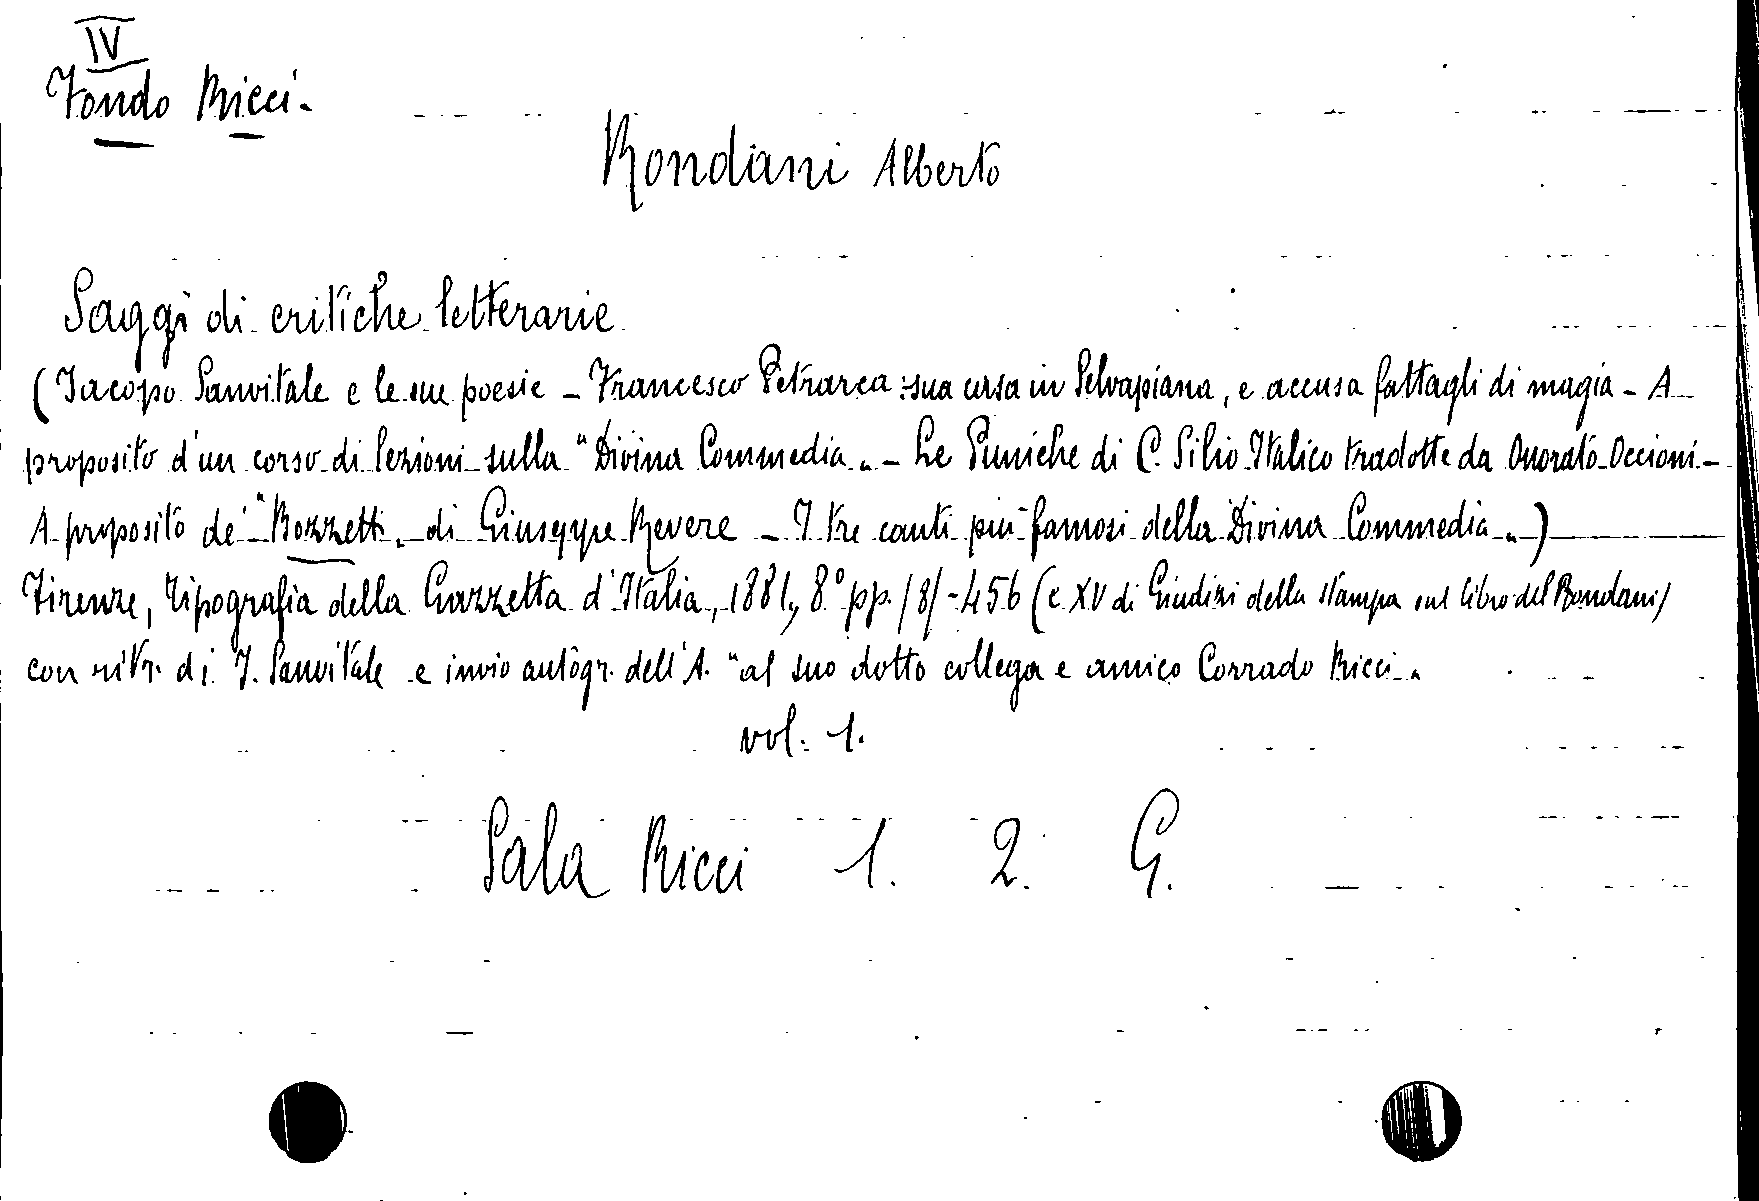 IV
Fondo Ricci.
Rondani Alberto
Saggi di critiche letterarie
(Jacopo Sanvitale e le sue poesie - Francesco Petrarca: sua casa in Selvapiana, e accusa fattagli di magia - A
proposito d'un corso di lezioni sulla "Divina Commedia" - Le Puniche di C. Silio Italico tradotte da Onorato Occioni -
A proposito de' "Bozzetti" di Giuseppe Revere - I tre canti più famosi della Divina Commedia")
Firenze, Tipografia della Gazzetta d'Italia, 1881, 8° pp. /8/-456 (e XV di Giudizi della stampa sul libro del Rondani)
con ritr. di J. Sanvitale e invio autogr. dell'A. "al suo dotto collega e amico Corrado Ricci"
vol. 1.
Sala Ricci 1. 2. G.